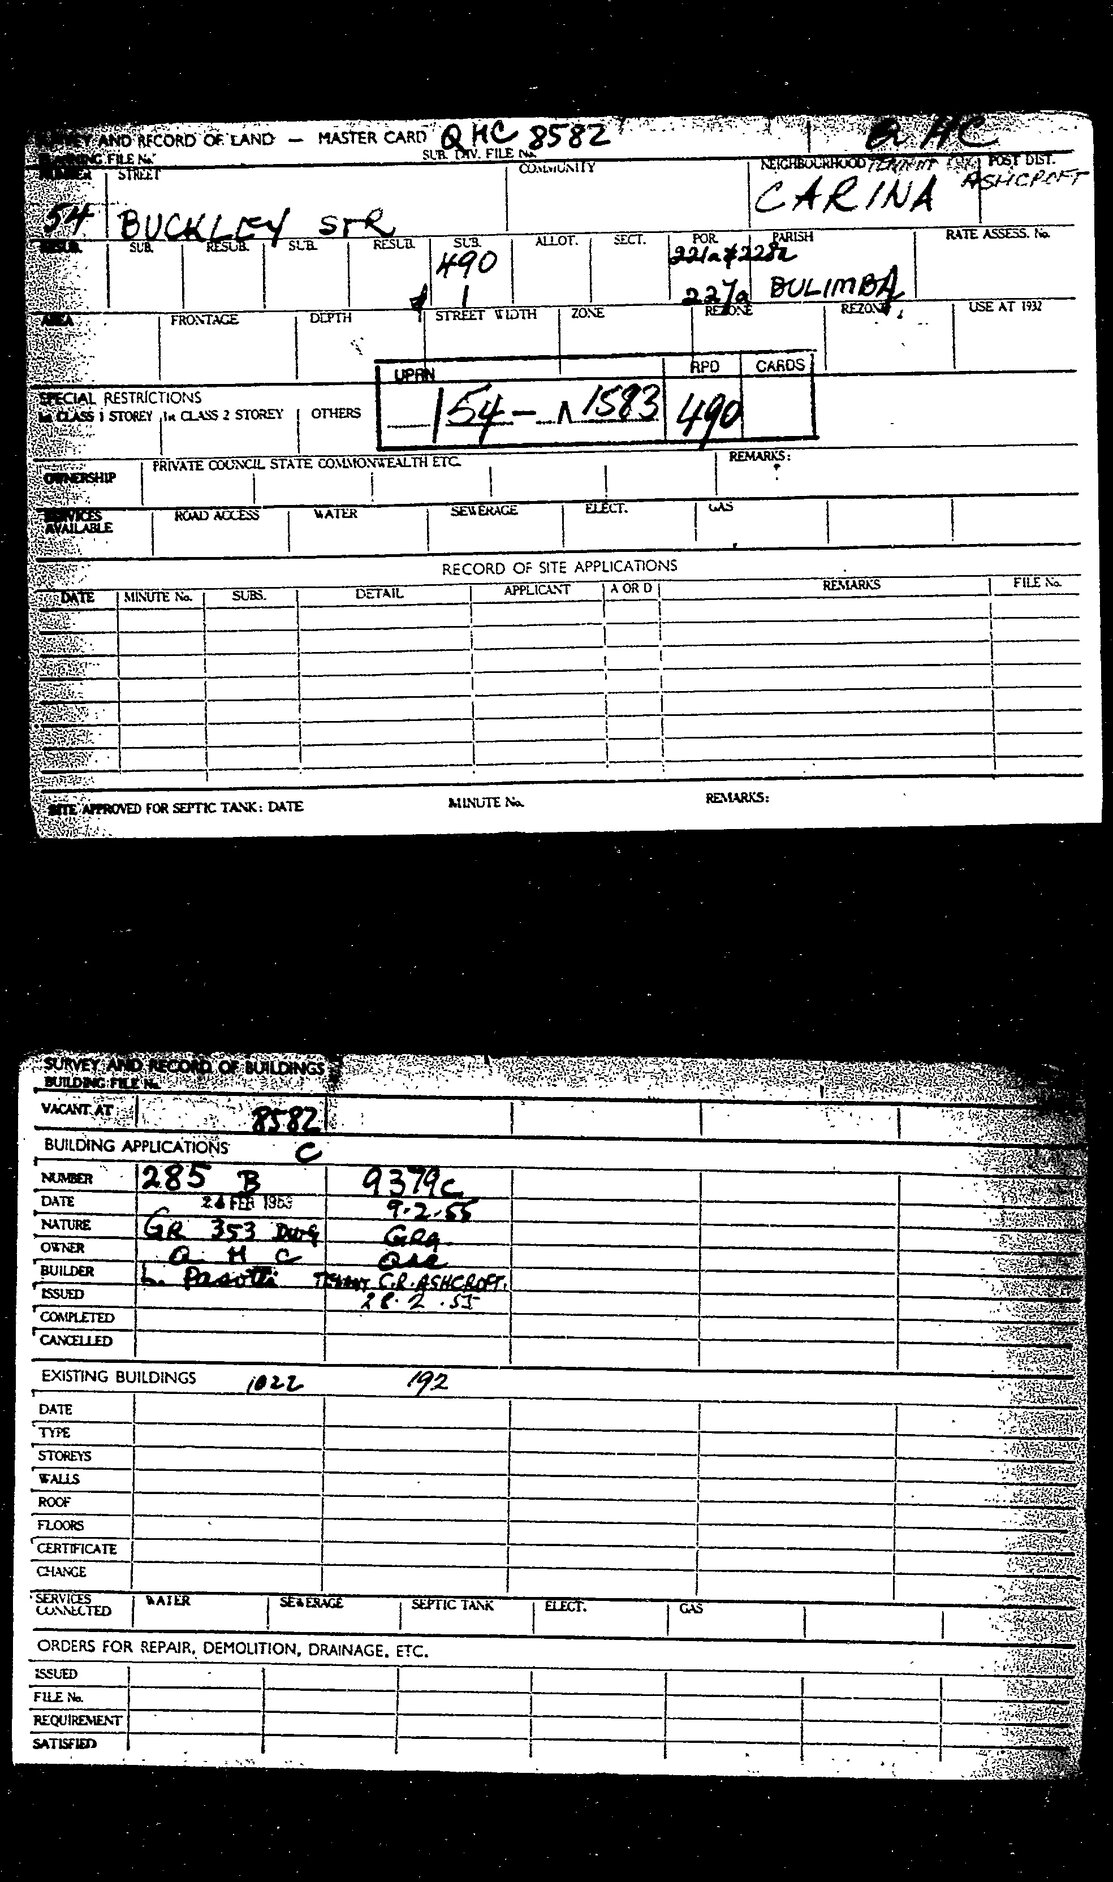 SURVEY AND RECORD OF LAND — MASTER CARD QHC 8582 QHC
PLANNING FILE No. SUB. DIV. FILE No.
NUMBER STREET COMMUNITY NEIGHBOURHOOD TENANT POST DIST.
54 BUCKLEY STR CARINA ASHCROFT
RESUB. SUB. RESUB. SUB. RESUB. SUB. ALLOT. SECT. POR. PARISH RATE ASSESS. No.
490 221a & 228a
1 227a BULIMBA
AREA FRONTAGE DEPTH STREET WIDTH ZONE REZONE REZONE USE AT 1932
UPRN RPD CARDS
SPECIAL RESTRICTIONS
1st CLASS 1 STOREY 1st CLASS 2 STOREY OTHERS
154 - 1583 490
OWNERSHIP PRIVATE COUNCIL STATE COMMONWEALTH ETC. REMARKS:
SERVICES AVAILABLE ROAD ACCESS WATER SEWERAGE ELECT. GAS
RECORD OF SITE APPLICATIONS
DATE MINUTE No. SUBS. DETAIL APPLICANT A OR D REMARKS FILE No.
SITE APPROVED FOR SEPTIC TANK: DATE MINUTE No. REMARKS:
SURVEY AND RECORD OF BUILDINGS
BUILDING FILE No.
VACANT AT 8582
BUILDING APPLICATIONS C
NUMBER 285 B 9379c
DATE FEB 9.2.55
NATURE GR 353 Dwg GRg.
OWNER Q H C QHC
BUILDER L. Pasotti TENANT C.R. ASHCROFT.
ISSUED 28.2.55
COMPLETED
CANCELLED
EXISTING BUILDINGS 1022 192
DATE
TYPE
STOREYS
WALLS
ROOF
FLOORS
CERTIFICATE
CHANGE
SERVICES CONNECTED WATER SEWERAGE SEPTIC TANK ELECT. GAS
ORDERS FOR REPAIR, DEMOLITION, DRAINAGE, ETC.
ISSUED
FILE No.
REQUIREMENT
SATISFIED